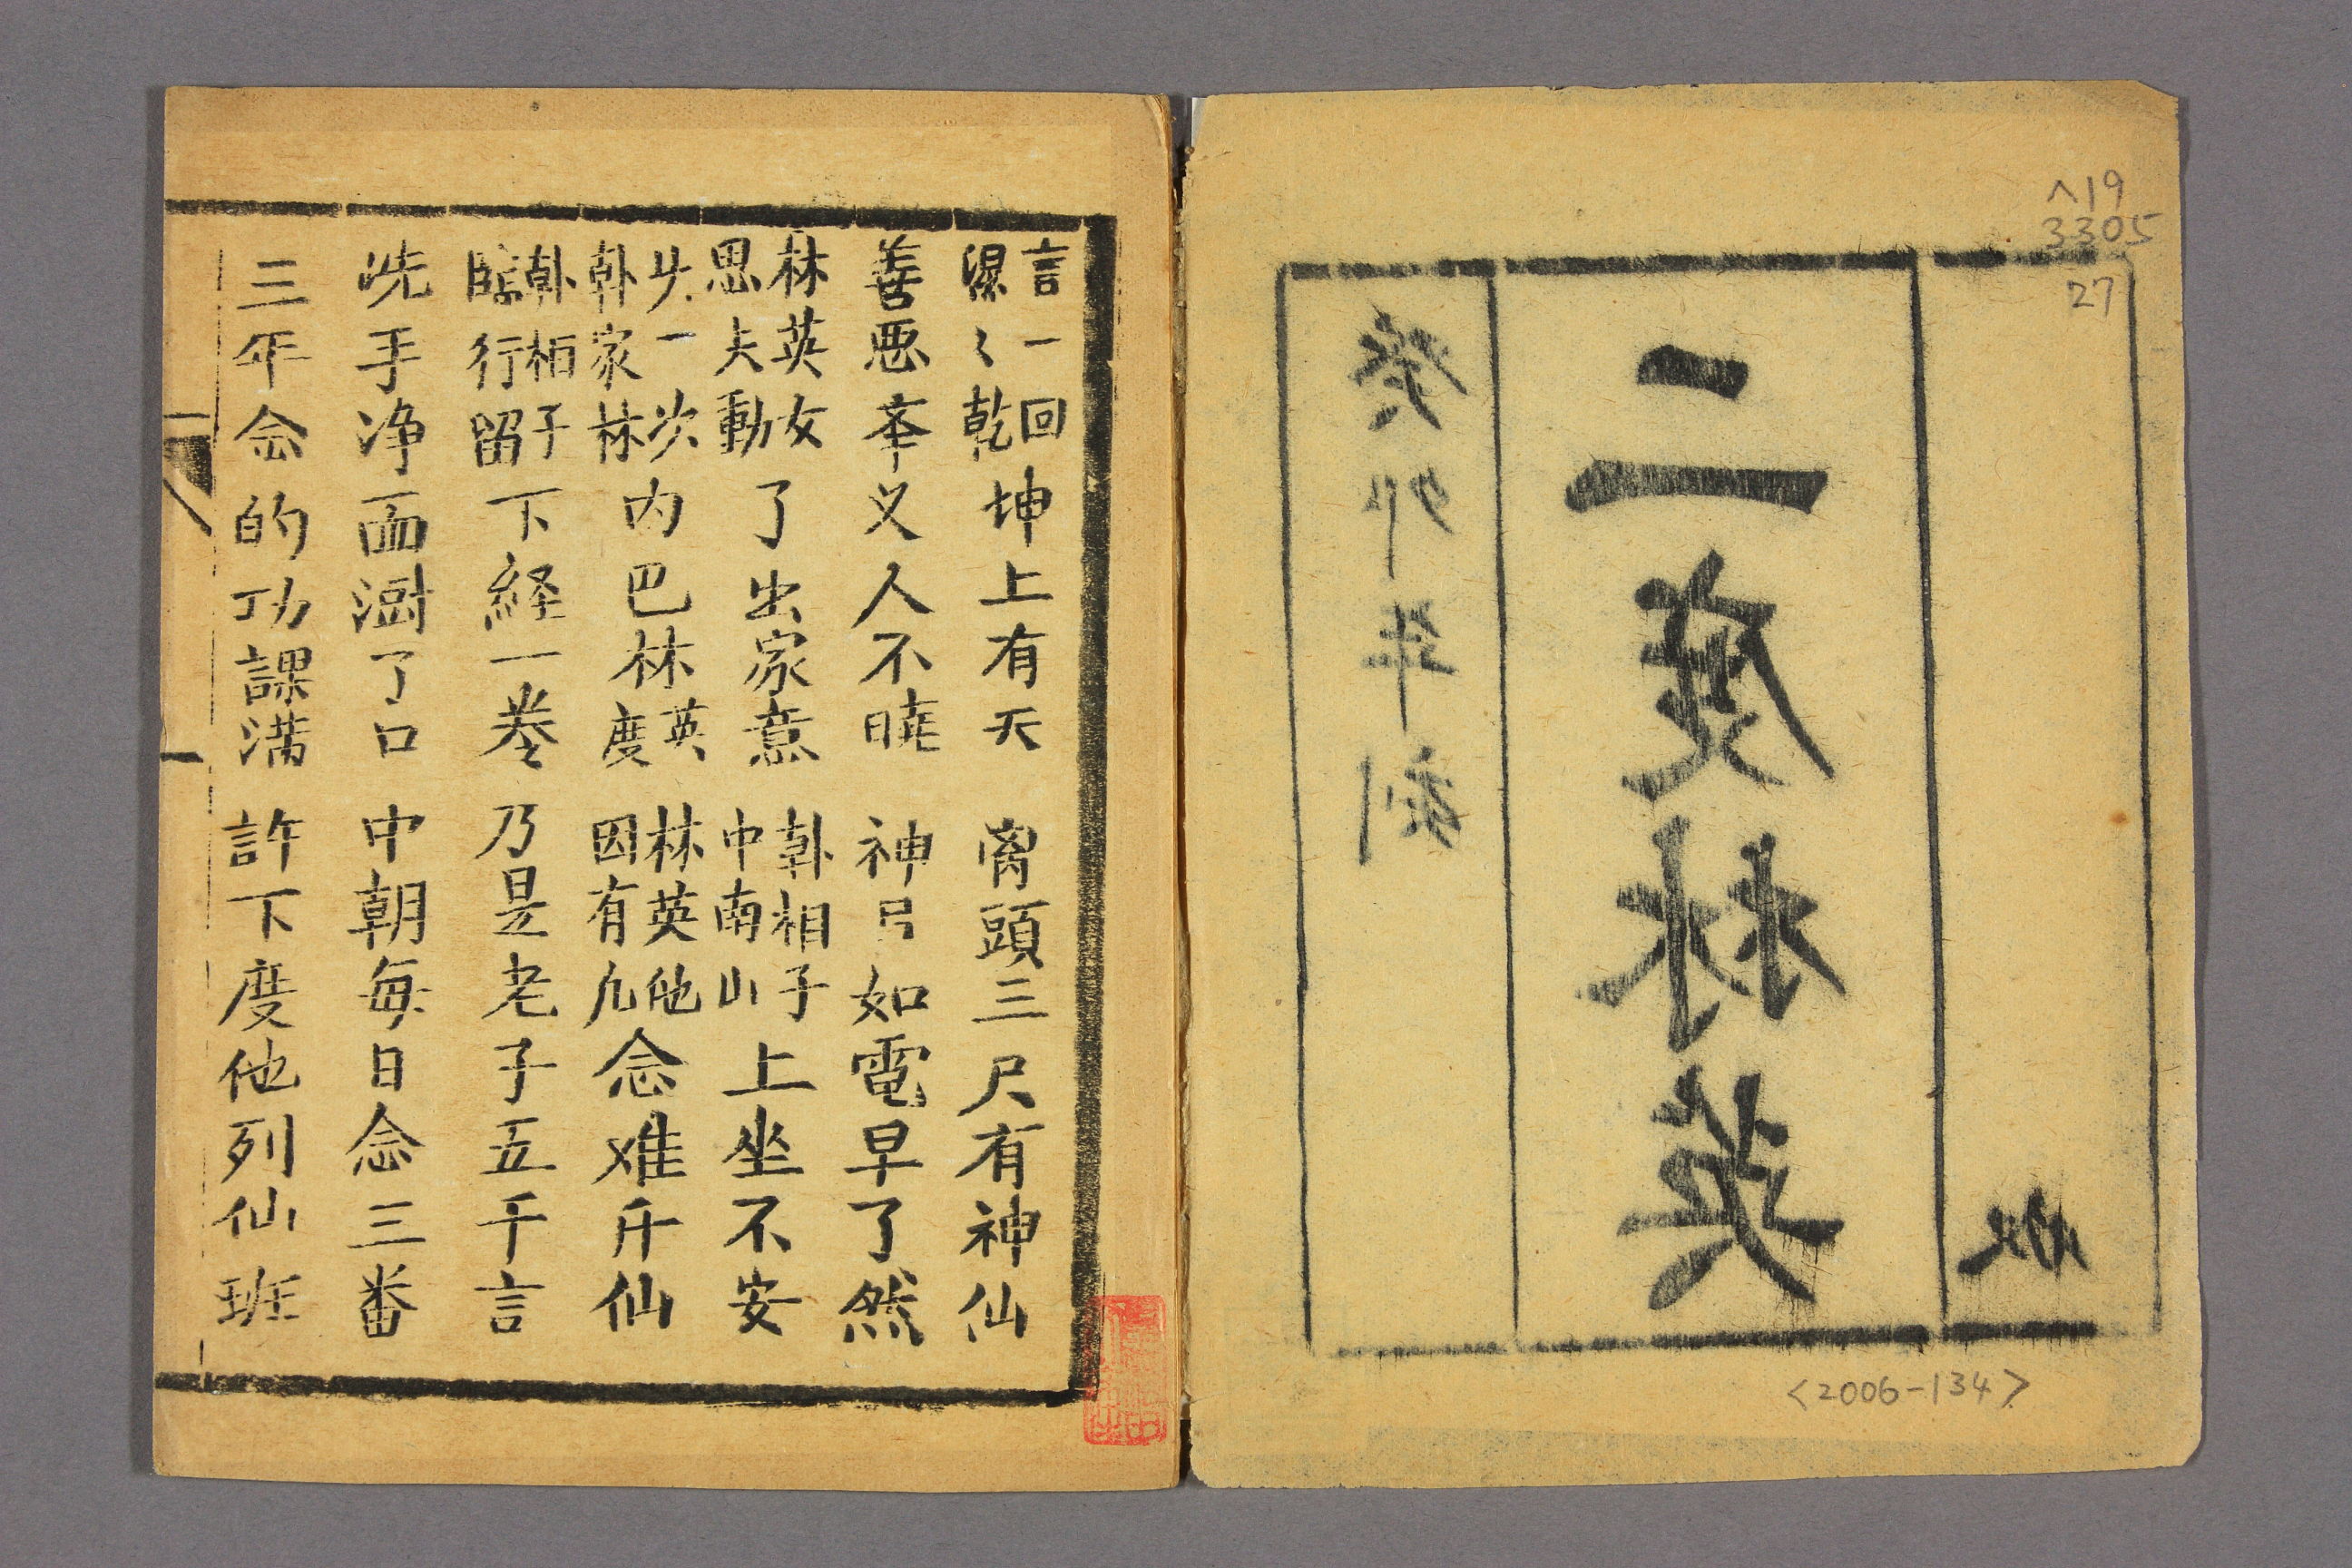 ヘ19
3305
27
二度林英
癸卯年刻
<2006-134>
言一回
乾坤上有天 离頭三尺有神仙
善悪夲义人不暁 神弓如電早了然
林英女思夫動了出家意 韩相子中南山上坐不安
头一次韩家林内巴林英度 林英他因有九念难斤仙
韩相子臨行留下経一巻 乃是老子五千言
洗手净面澍了口 中朝每日念三番
三年念的功課满 許下度他列仙班